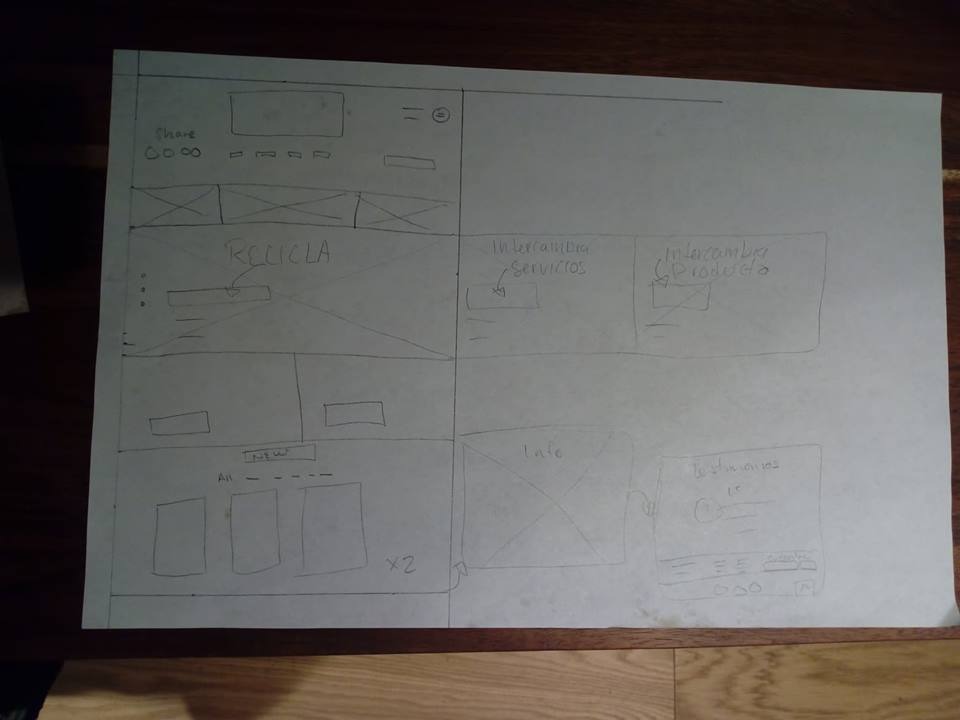 Share
RECICLA
Intercambia
Servicios
Intercambia
Producto
NEW
All
x2
Info
Testimonios